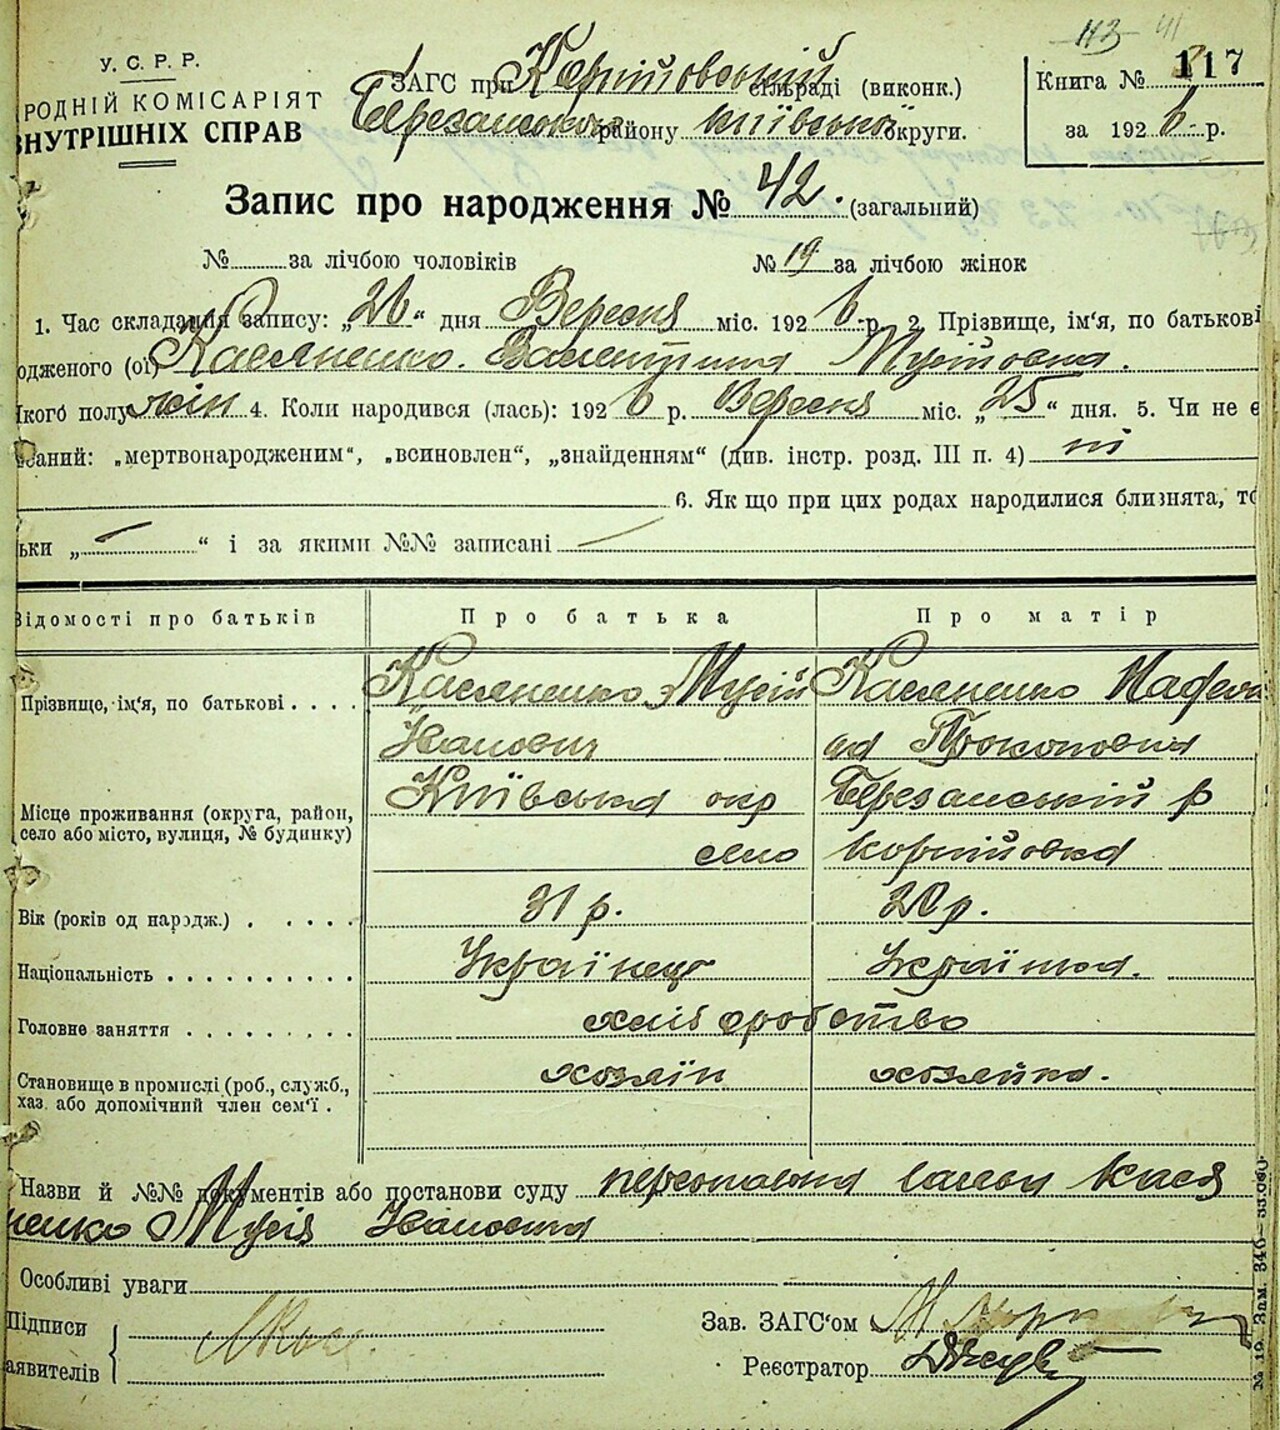 113 41
У. С. Р. Р.
РОДНІЙ КОМІСАРІЯТ
ВНУТРІШНІХ СПРАВ
ЗАГС при Корніївській сільраді (виконк.)
Березанського району Київської округи.
Книга № 117
за 1926 р.
Запис про народження № 42. (загальний)
№ за лічбою чоловіків № 19 за лічбою жінок
1. Час складання запису: „26“ дня Вересня міс. 1926 р. 2. Прізвище, ім'я, по батькові
одженого (ої) Касяненко Валентина Мусіївна.
якого полу жін 4. Коли народився (лась): 1926 р. Вересня міс. „25“ дня. 5. Чи не є
заний: „мертвонародженим“, „всиновлен“, „знайденням“ (див. інстр. розд. III п. 4) ні
6. Як що при цих родах народилися близнята, то
ьки „—“ і за якими №№ записані —
Відомості про батьків Про батька Про матір
Прізвище, ім'я, по батькові . . . . Касяненко Мусій Касяненко
Іванович Прокоповна
Місце проживання (округа, район, село або місто, вулиця, № будинку) Київська окр Березанський р
село Корніївка
Вік (років од народж.) . . . . . 31 р. 20 р.
Національність . . . . . . . . . . Українець Українка.
Головне заняття . . . . . . . . . хліборобство
Становище в промислі (роб., служб., хаз. або допомічний член сем'ї . хозяїн хозяйка.
Назви й №№ документів або постанови суду персональна заява Кася
ненко Мусія Івановича
Особливі уваги
Підписи
аявителів
Зав. ЗАГС'ом
Реєстратор
№ 19. Зам. 346—55.000.